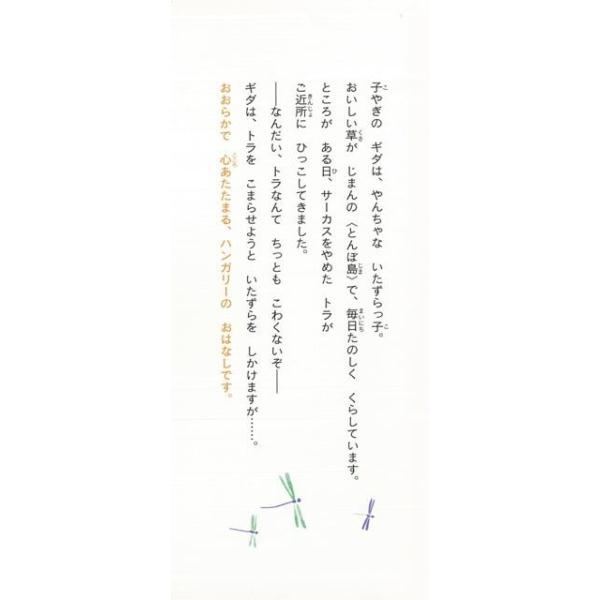 子やぎの ギダは、やんちゃな いたずらっ子。
おいしい草が じまんの〈とんぼ島〉で、毎日たのしく くらしています。
ところが ある日、サーカスをやめた トラが
ご近所に ひっこしてきました。
――なんだい、トラなんて ちっとも こわくないぞ――
ギダは、トラを こまらせようと いたずらを しかけますが……。
おおらかで 心あたたまる、ハンガリーの おはなしです。